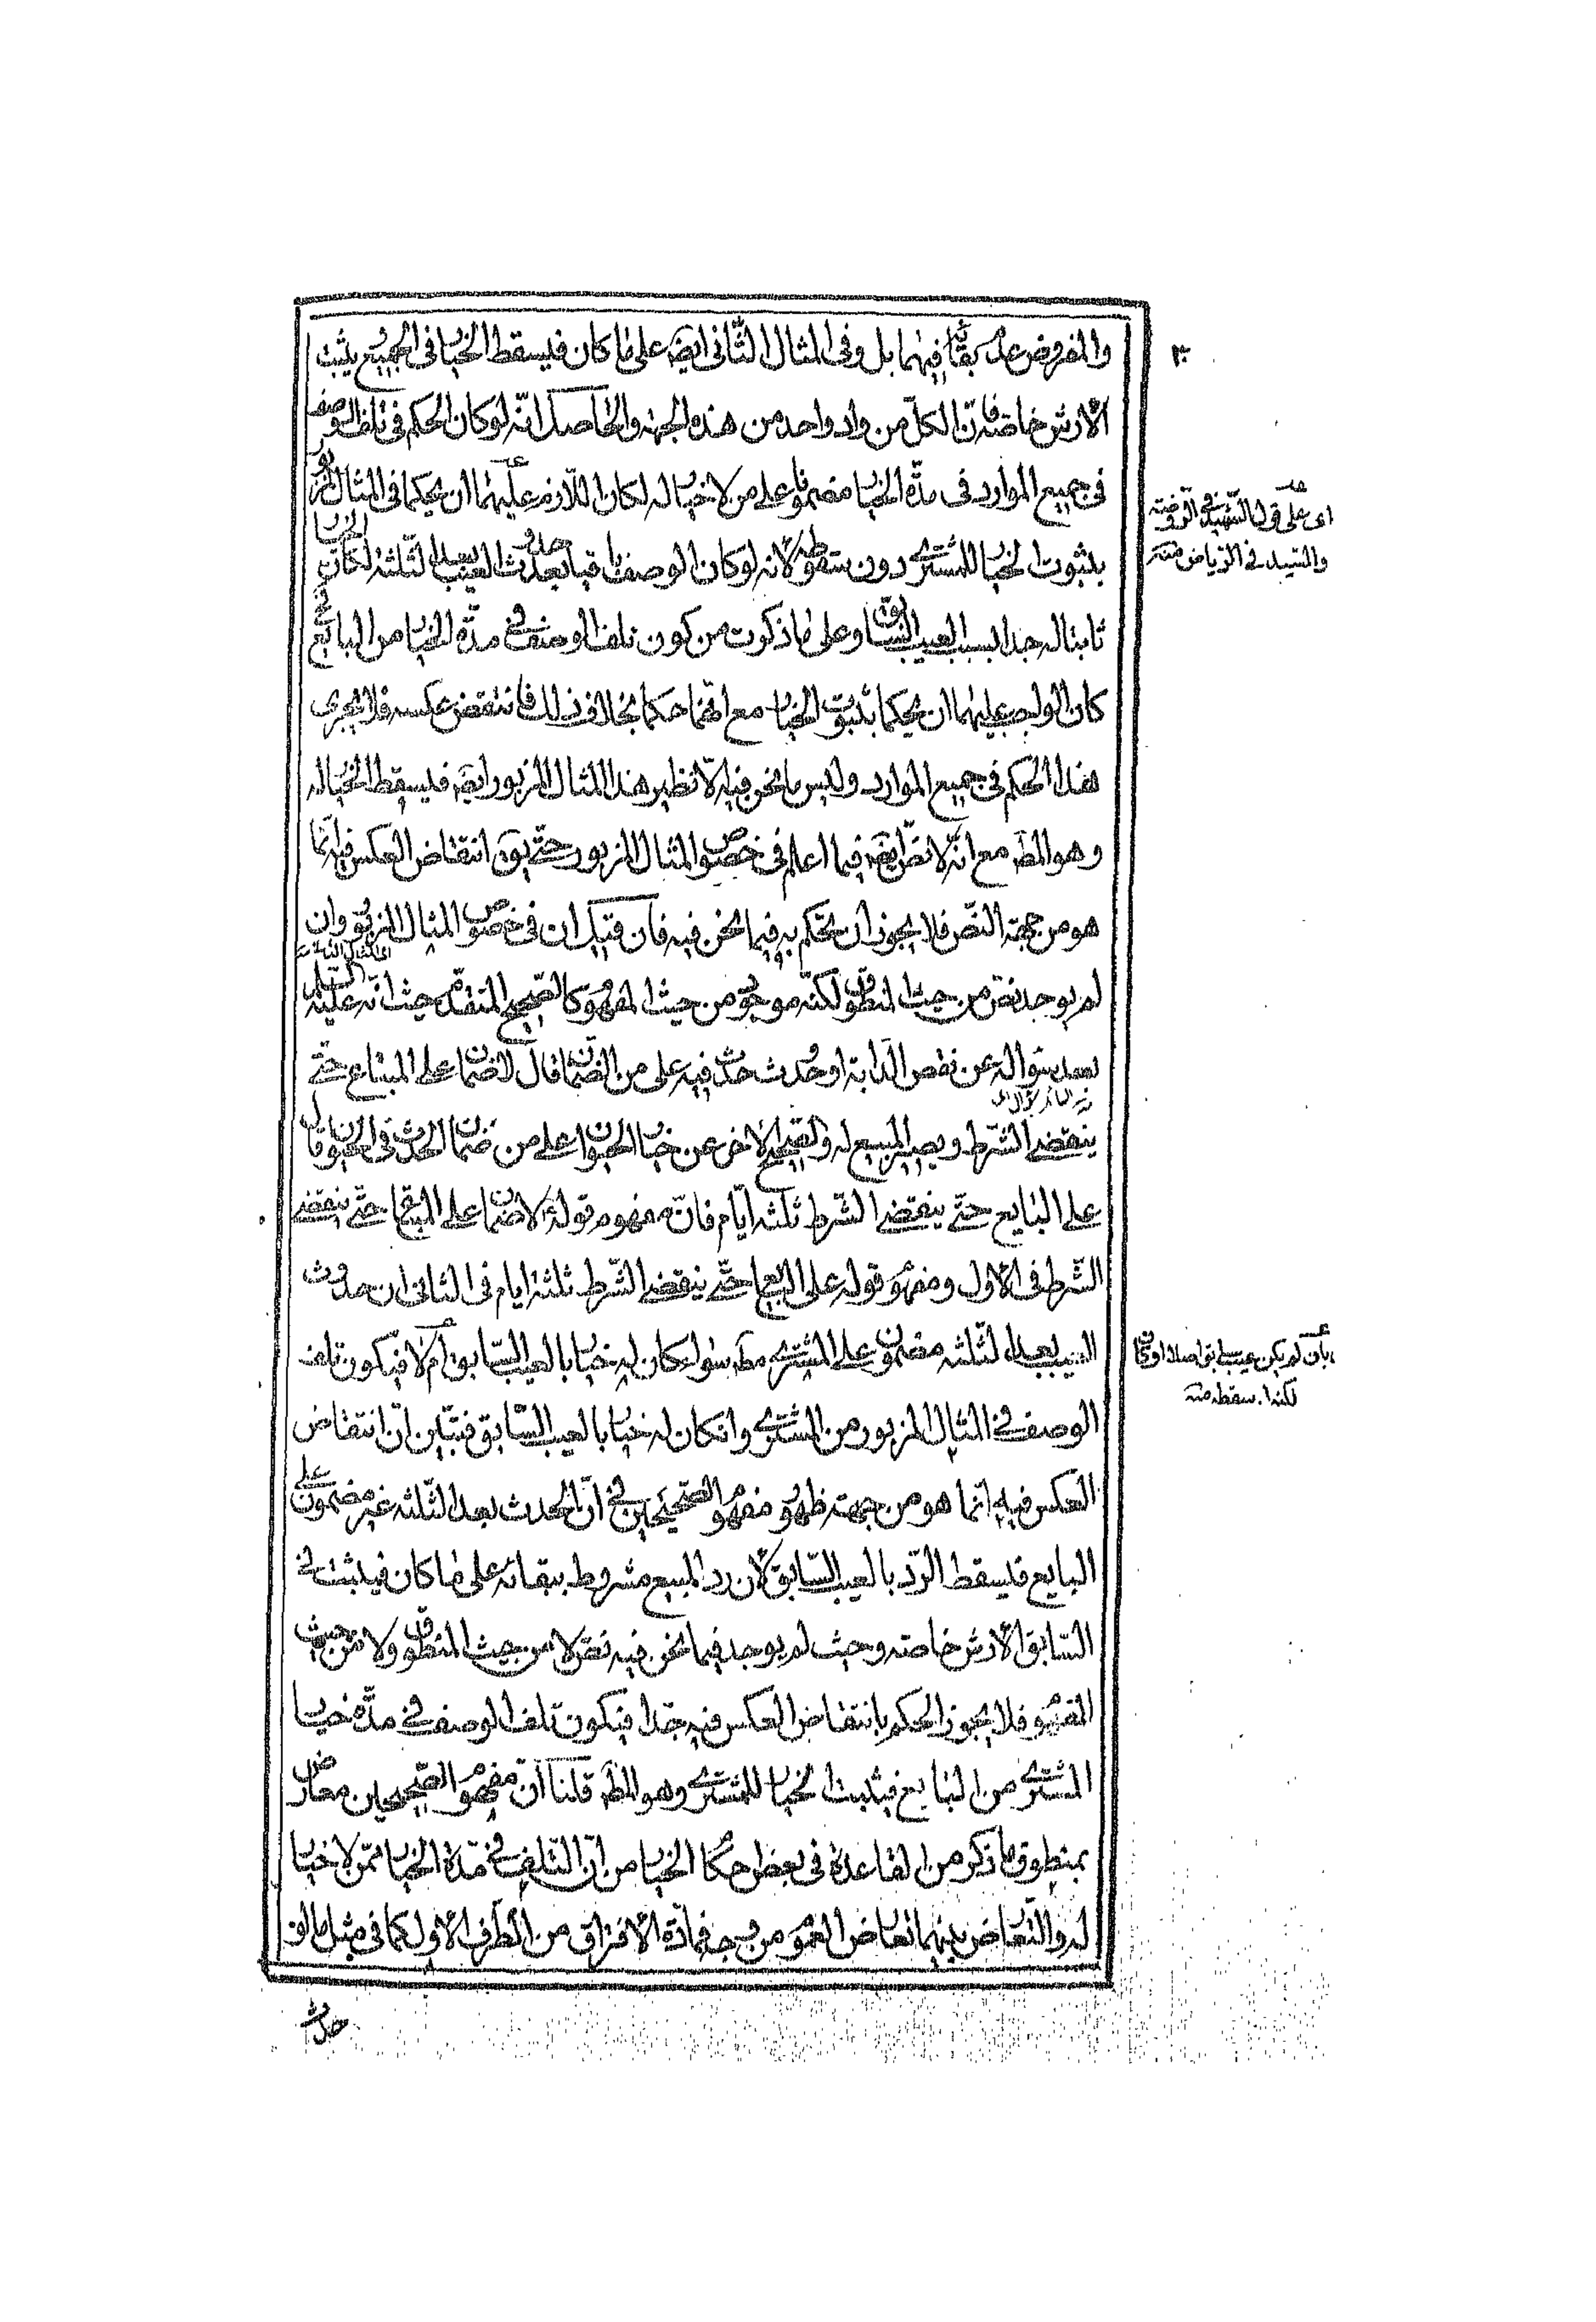 والمفروض عدم بقائه فيهما بل وفى المثال الثّانى ايضه على ما كان فيسقط الخيار فى الجميع يثبت
الأرش خاصّه فانّ الكلّ من واد واحد من هذه الجهة والحاصل انّه لو كان الحكم فى تلف الوصف
فى جميع الموارد فى مدّة الخيار مضمونا على من لا خيار له لكان اللّازم عليهما ان يحكما فى المثال المزبور
بثبوت الخيار للمشترى دون سقوطه لانه لو كان الوصف باقيا بعد حدوث العيب بعد الثّلثة لكان الخيار
ثابتا له جدا بسبب العيب السّابق وعلى ما ذكرت من كون تلف الوصف فى مدّة الخيار من البايع
كان الواجب عليهما ان يحكما بثبوت الخيار مع انّهما حكما بخلاف ذلك فانتقض عكسه فلا يجرى
هذا الحكم فى جميع الموارد وليس ما نحن فيه الّا نظير هذا المثال المزبور ايضه فيسقط الخيار له
وهو المطه مع انّه لا نصّ ايضه فيما اعلم فى خصوص المثال المزبور حتّى يوق انتقاض العكس فيه انّما
هو من جهة النصّ فلا يجوز ان يحكم به فيما نحن فيه فان قيل ان فى خصوص المثال المزبور وان
لم يوجد نصّ من حيث المنطوق لكنّه موجود من حيث المفهوم كالصّحيح المتقدّم حيث انّه عليه السّلم
بعد سؤاله عن نقص الدّابة او حدوث حدث فيه على من الضّمان قال لا ضمان على المبتاع حتّى
ينقضى الشّرط ويصير المبيع له والصّحيح الاخر عن خيار الحيوان على من ضمان الحدث فى الحيوان قال
على البايع حتّى ينقضى الشّرط ثلثة ايّام فانّ مفهوم قوله لا ضمان على المبتاع حتّى ينقضى
الشّرط فى الاول ومفهوم قوله على البايع حتّى ينقضى الشّرط ثلثة ايام فى الثانى ان حدوث
العيب بعد الثّلثه مضمون على المشترى مطه سواء كان له خيار بالعيب السّابق ام لا فيكون تلف
الوصف فى المثال المزبور من المشترى وانكان له خيار بالعيب السّابق فتبيّن انّ انتقاض
العكس فيه انّما هو من جهة ظهور مفهوم الصّحيحين فى انّ الحدث بعد الثّلثه غير مضمون على
البايع فيسقط الرّد بالعيب السّابق لان رد المبيع مشروط ببقائه على ما كان فيثبت فى
السّابق الأرش خاصّه وحيث لم يوجد فيما نحن فيه نصّ لا من حيث المنطوق ولا من حيث
المفهوم فلا يجوز الحكم بانتقاض العكس فيه جدا فيكون تلف الوصف فى مدّة خيار
المشترى من البايع فيثبت الخيار للمشترى وهو المطه قلنا انّ مفهوم الصّحيحين معارض
بمنطوق ما ذكر من القاعدة فى بعض احكام الخيار من انّ التّلف فى مدّة الخيار ممّن لا خيار
له والتّعارض بينهما تعارض العموم من وجه فمادّة الافتراق من الطّرف الاول كما فى مثل ما لو
حدث
٣
اى على قول الشّهيد فى الرّوضه
والسّيد فى الرّياض منه
بان لم يكن عيب سابق اصلا او كان
لكنه سقط منه